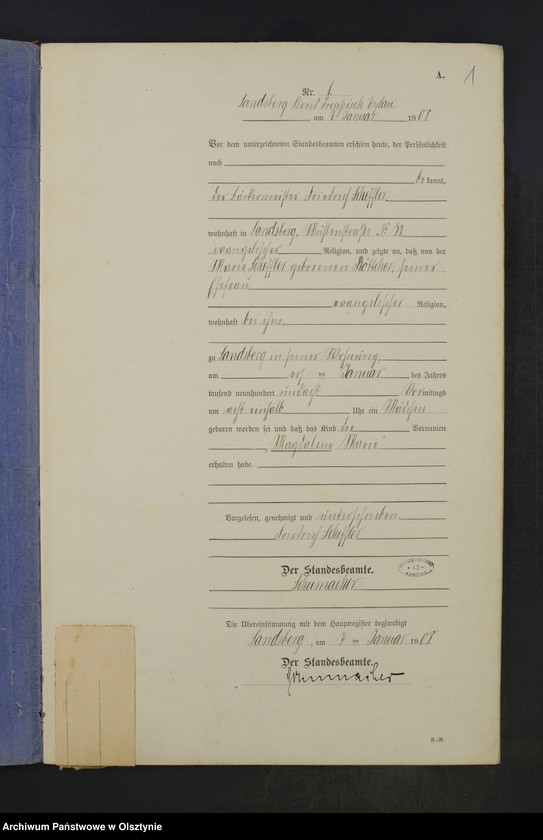 A.
1
Nr. 1
Landsberg Kreis Preußisch Eylau
, am 7. Januar 1908
Vor dem unterzeichneten Standesbeamten erschien heute, der Persönlichkeit
nach
be kannt,
der Bäckermeister Friedrich Scheffler
wohnhaft in Landsberg, Mühlenstraße No
evangelischer Religion, und zeigte an, daß von der
Marie Scheffler geborenen Böttcher, seiner
Ehefrau
evangelischer Religion,
wohnhaft bei ihm,
zu Landsberg in seiner Wohnung,
am ten Januar des Jahres
tausend neunhundert und acht Vormittags
um acht einhalb Uhr ein Mädchen
geboren worden sei und daß das Kind die Vornamen
Magdalene Marie
erhalten habe.
Vorgelesen, genehmigt und unterschrieben
Friedrich Scheffler
Der Standesbeamte.
Schumacher
Die Übereinstimmung mit dem Hauptregister beglaubigt
Landsberg, am 7 ten Januar 1908
Der Standesbeamte.
Schumacher
K.-R.
Archiwum Państwowe w Olsztynie